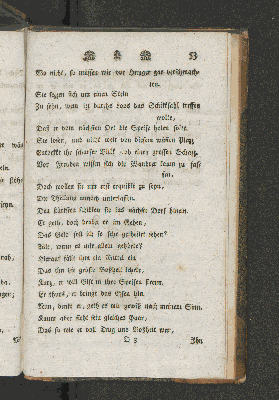 53
Wo nicht, so müssen wir vor Hunger gar verschmach-
ten.
Sie legen sich um einen Stein
Zu sehn, wen durchs Loos das Schicksahl treffen
wolle,
Daß er vom nächsten Ort die Speise holen solle.
Sie losen, und nicht weit von diesem wüsten Platz
Entdeckt ihr scharfer Blick noch einen grossen Schatz.
Vor Freuden wissen sich die Wandrer kaum zu fas-
sen.
Doch wollen sie nur erst erquickt zu seyn,
Die Theilung annoch unterlassen.
Den jüngsten schicken sie ins nächste Dorf hinein.
Er geht, doch denket er im Gehen,
Das Geld soll ich so sehr getheilet sehen?
Wie, wenn es mir allein gehörte?
Hierauf fällt ihm ein Mittel ein
Das ihn die größte Boßheit lehrte,
Kurz, er will Gift in ihre Speisen streun.
Er thuts, er bringt das Essen hin.
Nun, denkt er, geht es gewiß nach meinem Sinn.
Kaum aber sieht sein gleiches Paar,
Das so wie er voll Trug und Boßheit war,
D 3
Ihn